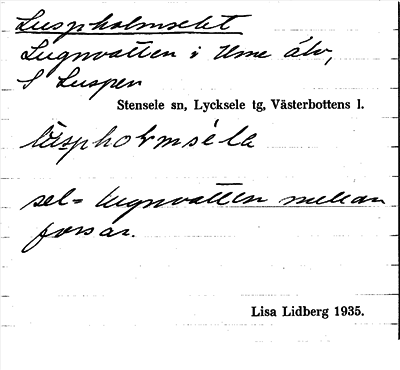 Luspholmselet
Lugnvatten i Ume älv,
S Luspen
Stensele sn, Lycksele tg, Västerbottens l.
luspholmsela
sel = lugnvatten mellan
forsar.
Lisa Lidberg 1935.